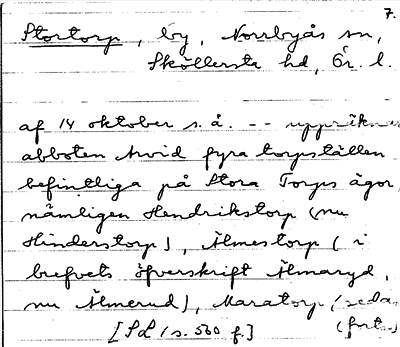 7.
Stortorp, by, Norrbyås sn,
Sköllersta hd, Ör. l.
af 14 oktober s. å. -- uppräknar
abboten Arvid fyra torpställen
befintliga på Stora Torps ägor,
nämligen Hendrikstorp (nu
Hinderstorp), Älmestorp (i
brefvets öfverskrift Älmaryd,
nu Älmerud), Maratorp (seda
[SL 1 s. 560 f.] (forts.)